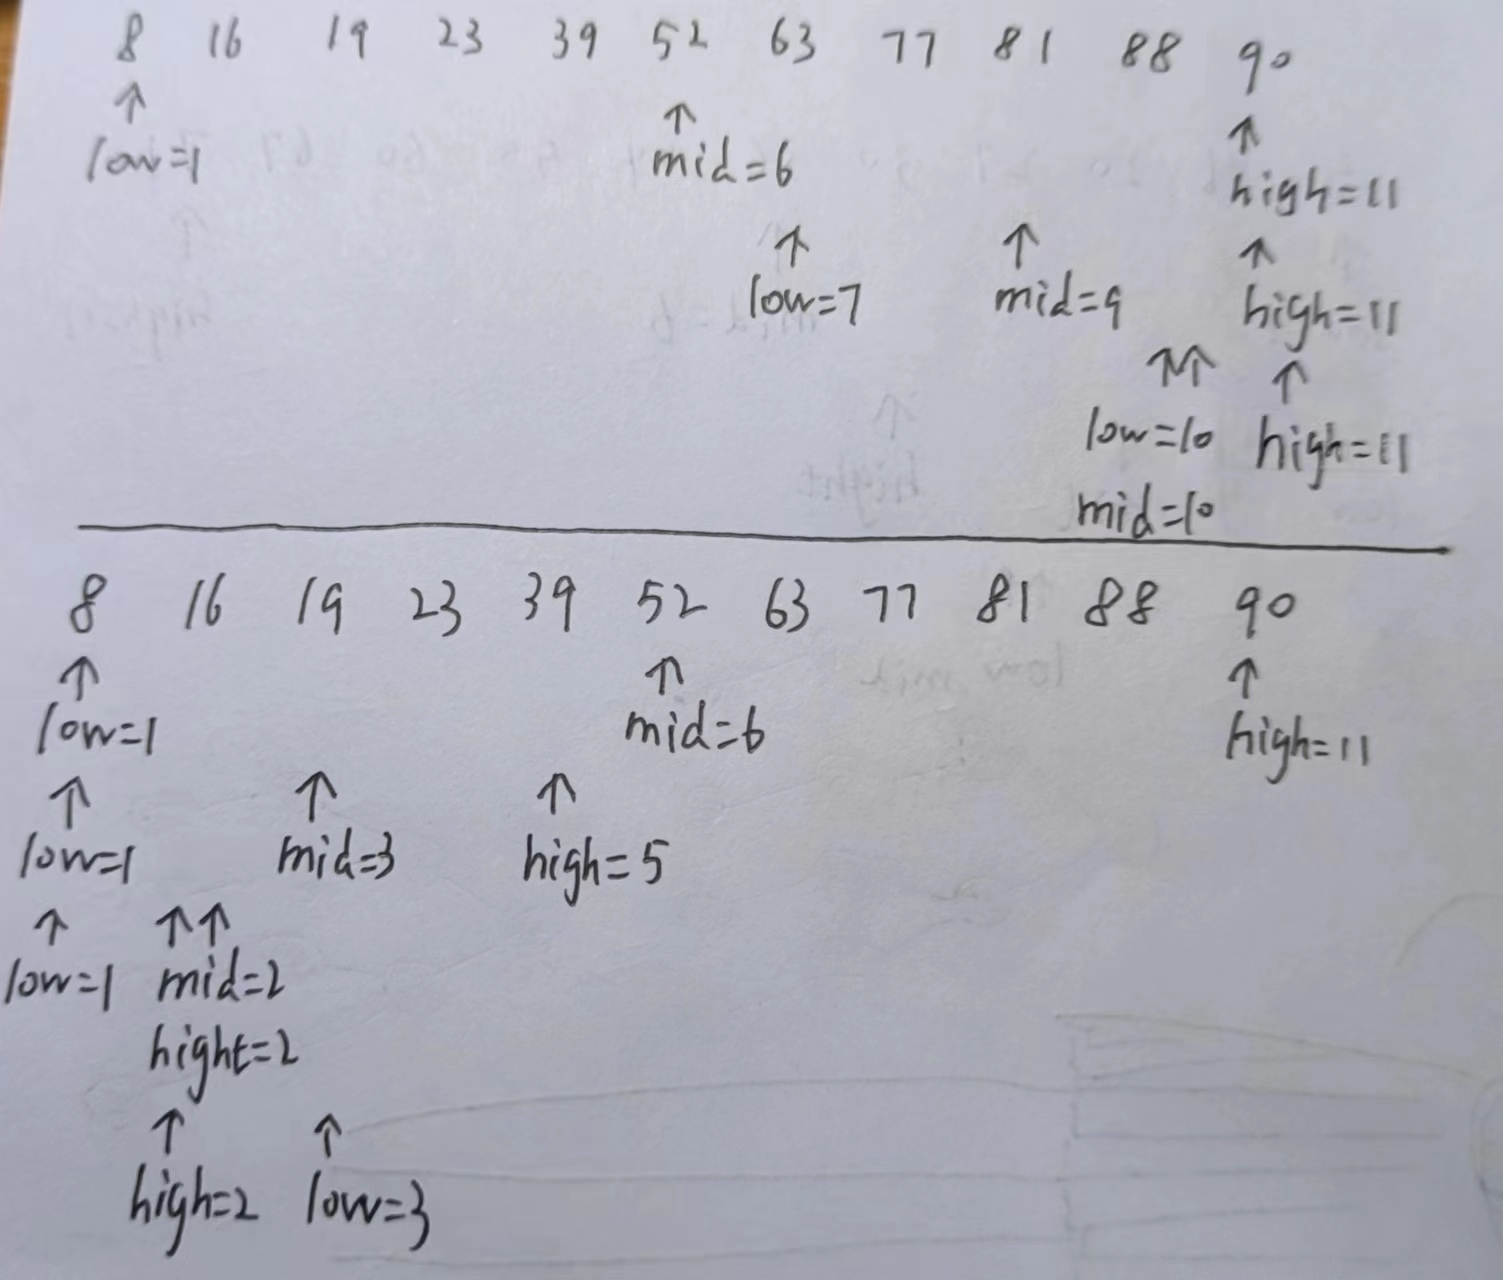 8 16 19 23 39 52 63 77 81 88 90
↑ ↑ ↑
low=1 mid=6 high=11
↑ ↑ ↑
low=7 mid=9 high=11
↑↑ ↑
low=10 high=11
mid=10
8 16 19 23 39 52 63 77 81 88 90
↑ ↑ ↑
low=1 mid=6 high=11
↑ ↑ ↑
low=1 mid=3 high=5
↑ ↑↑
low=1 mid=2
hight=2
↑ ↑
high=2 low=3